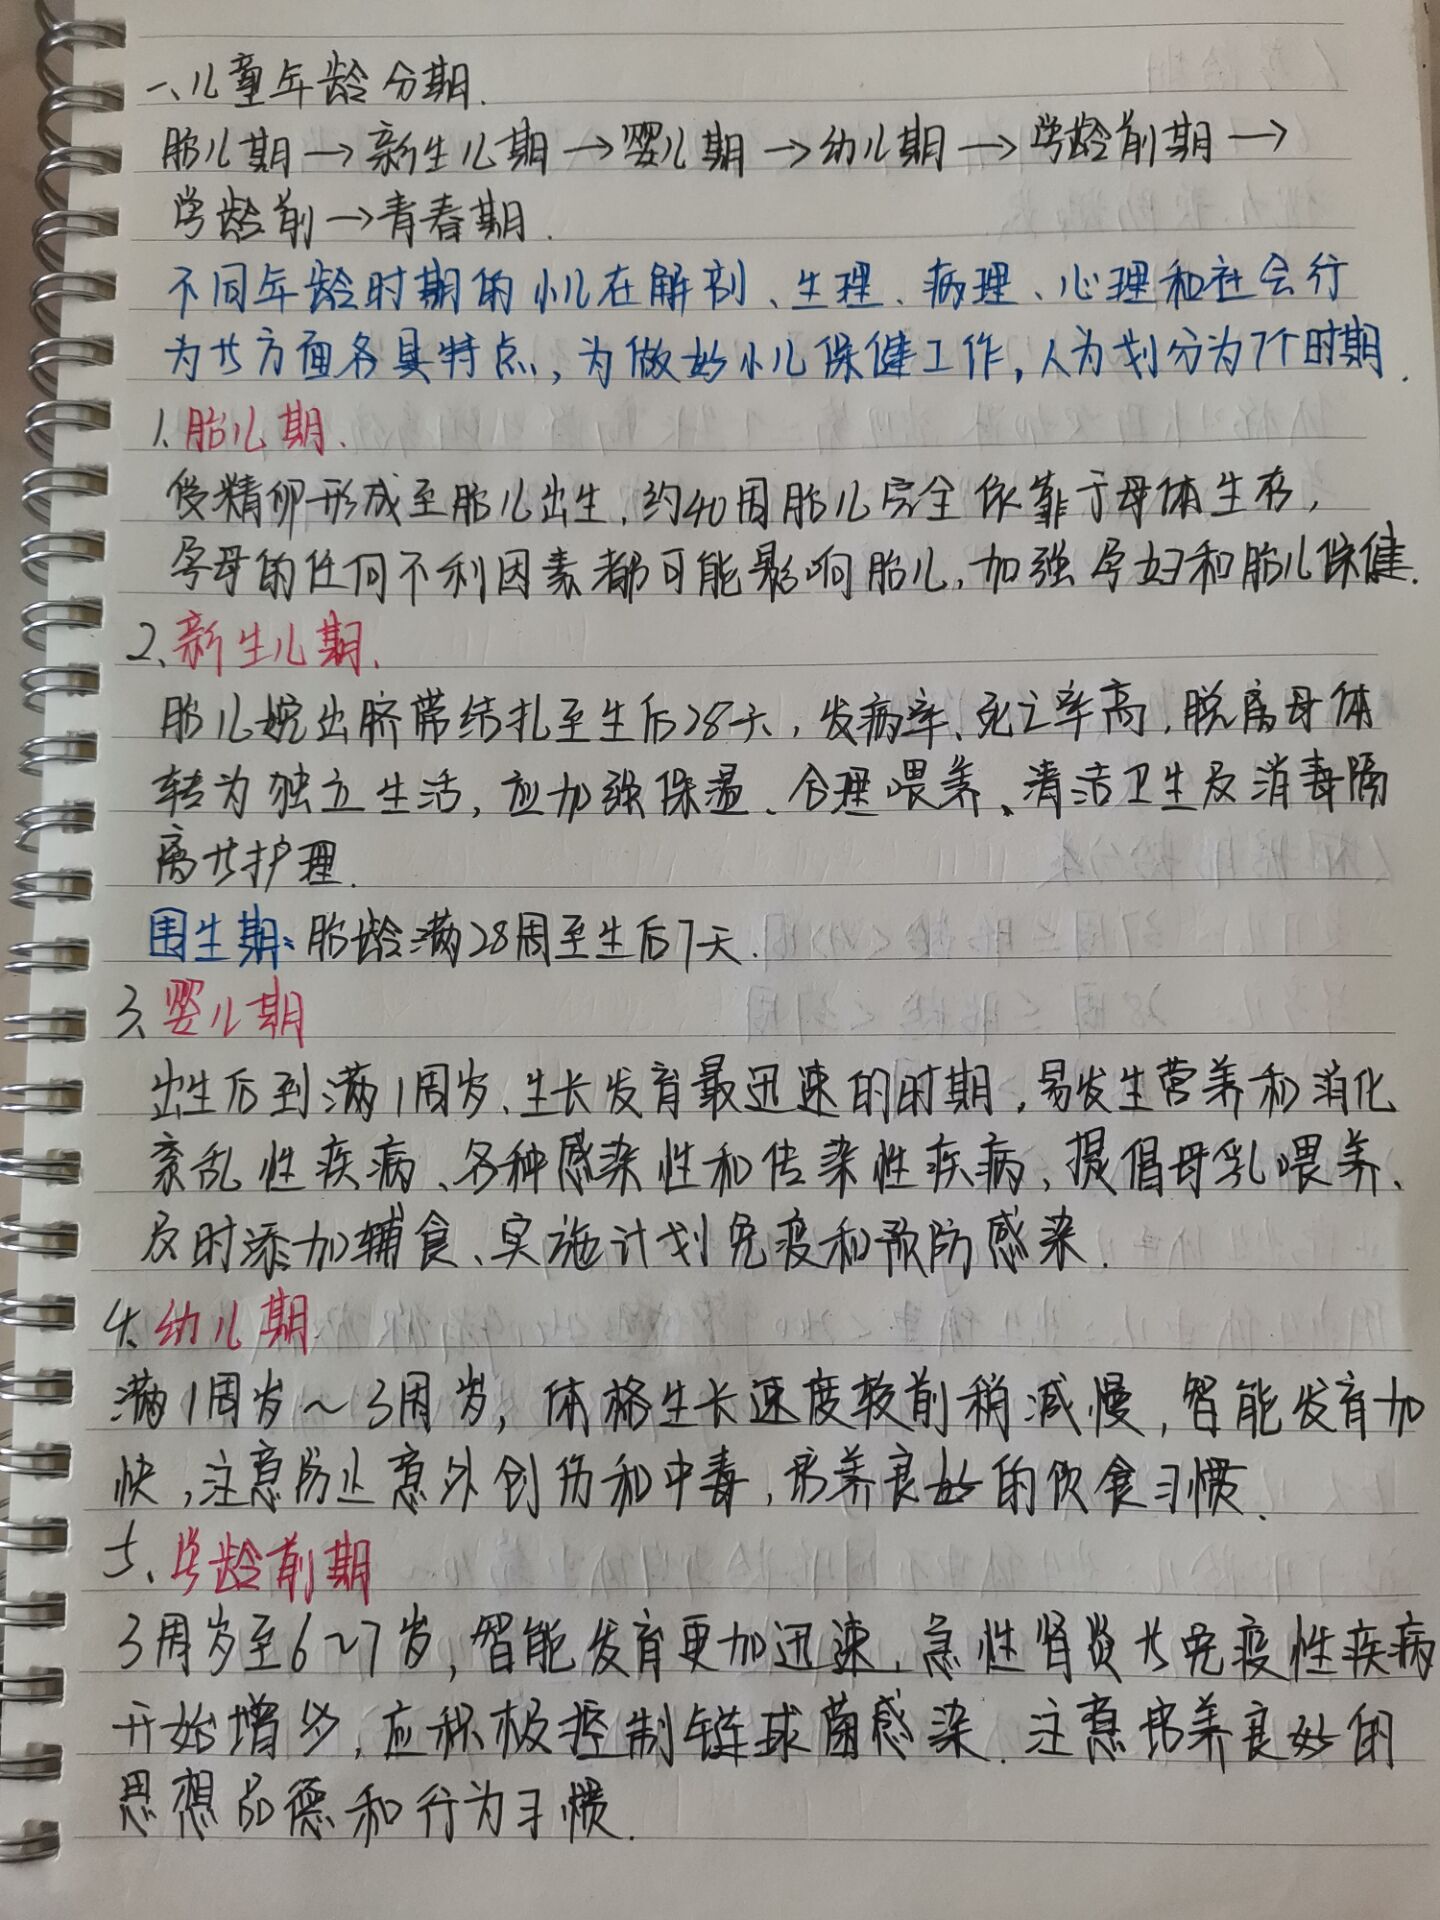 一、儿童年龄分期.
胎儿期→新生儿期→婴儿期→幼儿期→学龄前期→
学龄前→青春期.
不同年龄时期的小儿在解剖、生理、病理、心理和社会行
为等方面各具特点,为做好小儿保健工作,人为划分为7个时期.
1.胎儿期.
受精卵形成至胎儿出生,约40周胎儿完全依靠于母体生存,
孕母的任何不利因素都可能影响胎儿,加强孕妇和胎儿保健.
2.新生儿期.
胎儿娩出脐带结扎至生后28天,发病率、死亡率高,脱离母体
转为独立生活,应加强保温、合理喂养、清洁卫生及消毒隔
离等护理.
围生期:胎龄满28周至生后7天.
3.婴儿期
出生后到满1周岁、生长发育最迅速的时期,易发生营养和消化
紊乱性疾病、各种感染性和传染性疾病,提倡母乳喂养、
及时添加辅食、实施计划免疫和预防感染.
4.幼儿期
满1周岁～3周岁,体格生长速度较前稍减慢,智能发育加
快,注意防止意外创伤和中毒,培养良好的饮食习惯.
5、学龄前期
3周岁至6~7岁,智能发育更加迅速,急性肾炎等免疫性疾病
开始增多,应积极控制链球菌感染.注意培养良好的
思想品德和行为习惯.